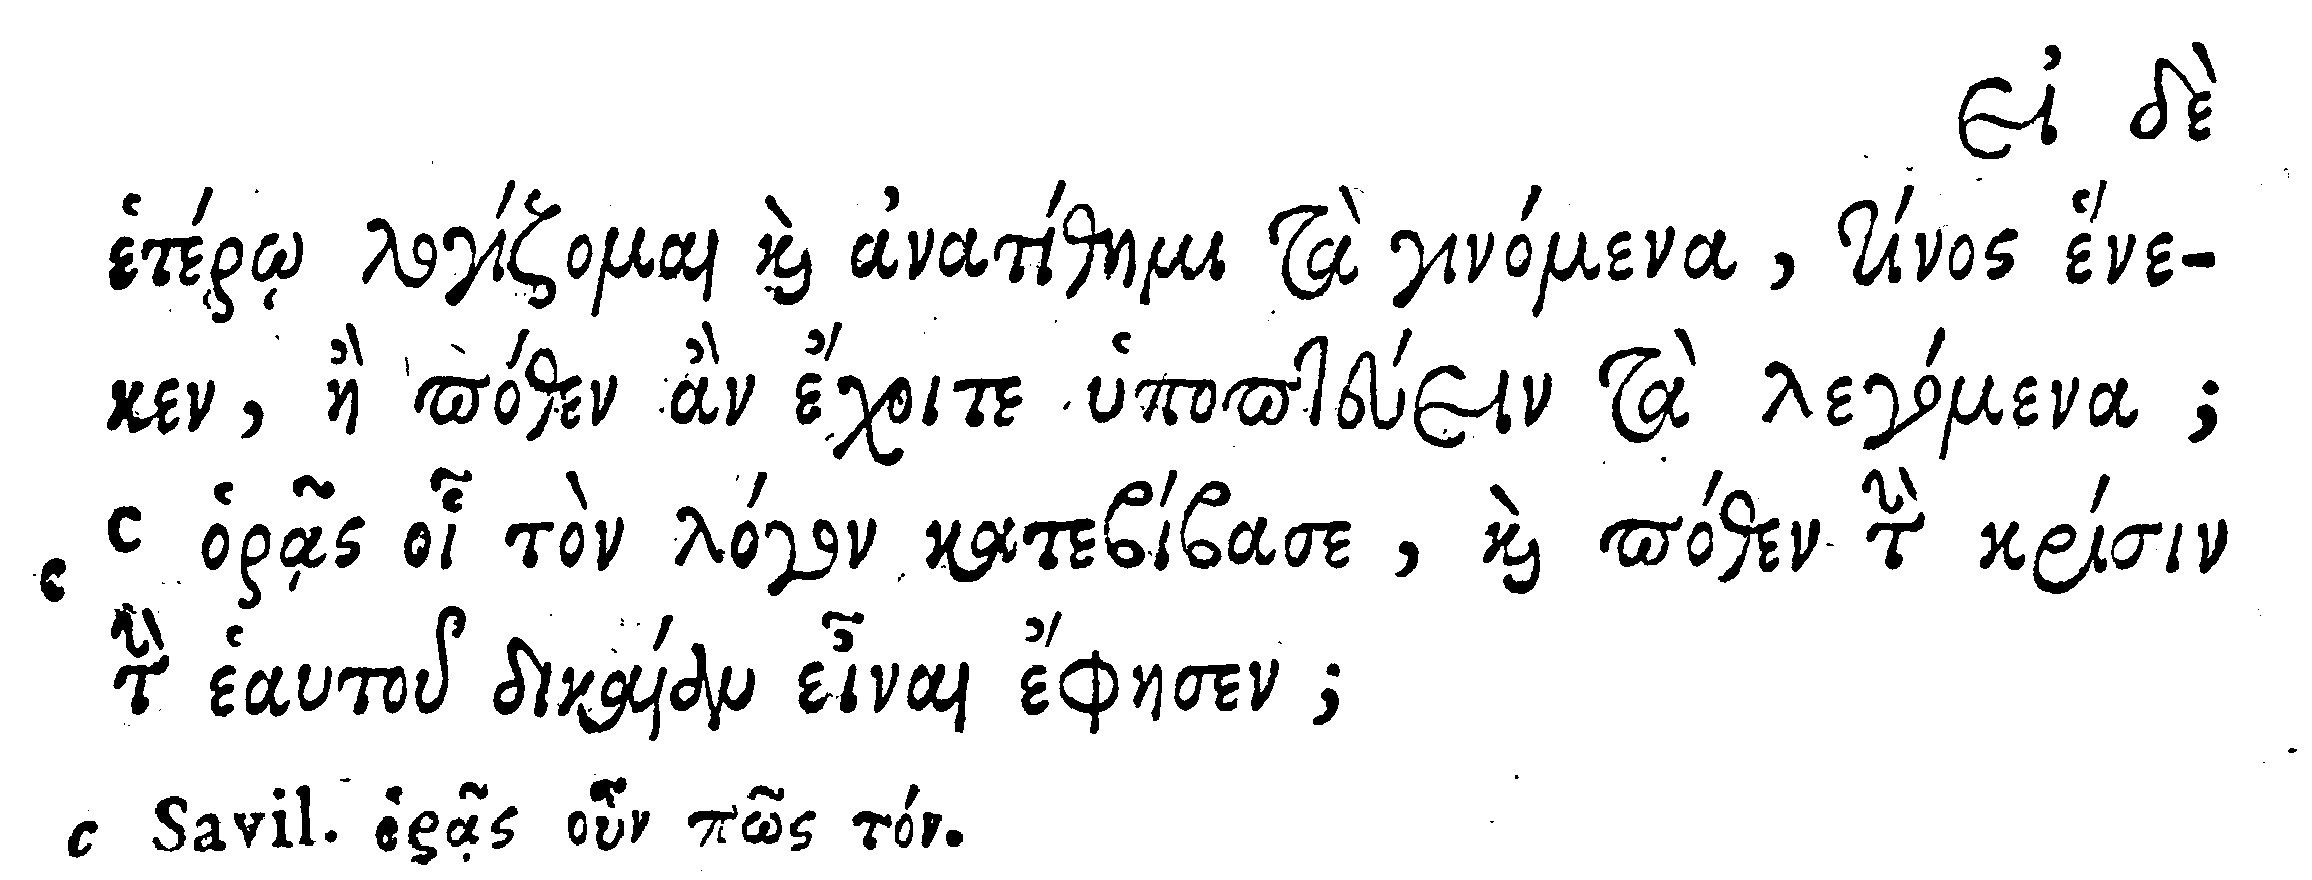 εἰ δὲ
ἑτέρῳ λογίζομαι καὶ ἀνατίθημι τὰ γινόμενα, τίνος ἕνε-
κεν, ἢ πόθεν ἂν ἔχοιτε ὑποπτεύειν τὰ λεγόμενα;
C ὁρᾷς οἷ τὸν λόγον κατεβίβασε, καὶ πόθεν τὴν κρίσιν
c
τὴν ἑαυτοῦ δικαίαν εἶναι ἔφησεν;
c Savil. ὁρᾷς οὖν πῶς τόν.